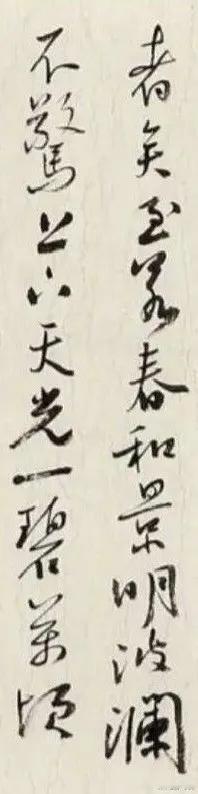 者矣至若春和景明波瀾
不驚上下天光一碧萬頃